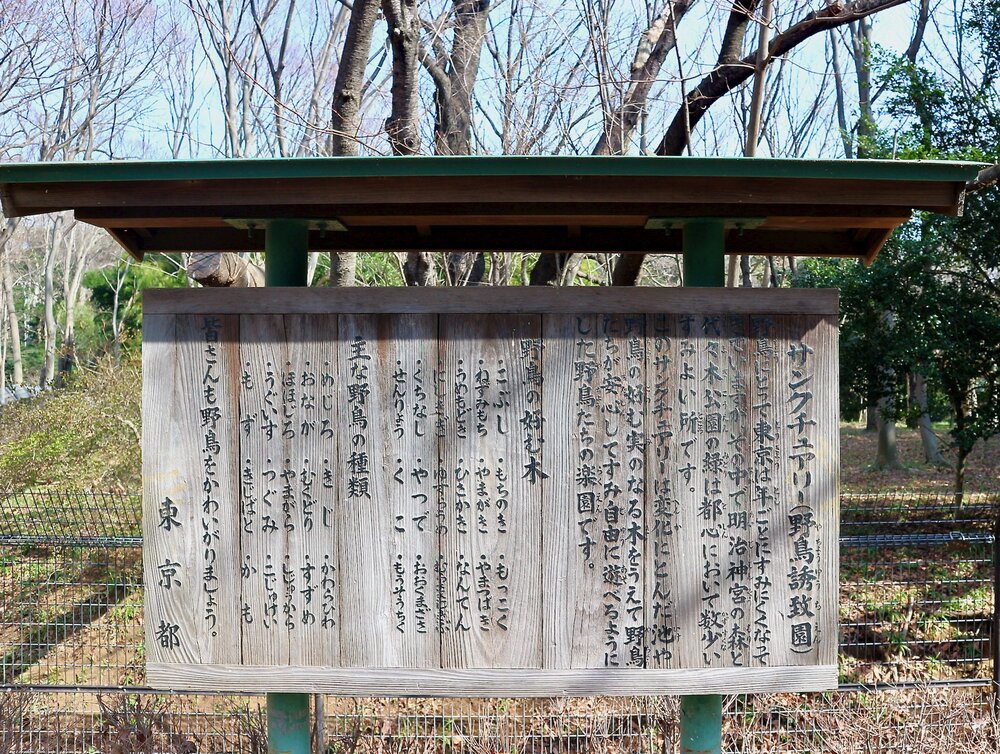 サンクチュアリー(野鳥誘致園)
野鳥にとって東京は年ごとにすみにくくなって
きていますが、その中で明治神宮の森と
代々木公園の緑は都心において数少い
すみよい所です。
このサンクチュアリーは変化にとんだ池や
野鳥の好む実のなる木をうえて野鳥
たちが安心してすみ自由に遊べるように
した野鳥たちの楽園です。
野鳥の好む木
・こぶし ・もちのき ・もっこく
・ねずみもち ・やまがき ・やまつばき
・うめもどき ・ひさかき ・なんてん
・にしきぎ
・くちなし ・やつで ・おおくまざさ
・せんりょう ・くこ ・もうそうちく
主な野鳥の種類
・めじろ ・きじ ・かわらひわ
・おなが ・むくどり ・すずめ
・ほほじろ ・やまがら ・しじゅうから
・うぐいす ・つぐみ ・こじゅけい
・もず ・きじばと ・かも
皆さんも野鳥をかわいがりましょう。
東京都